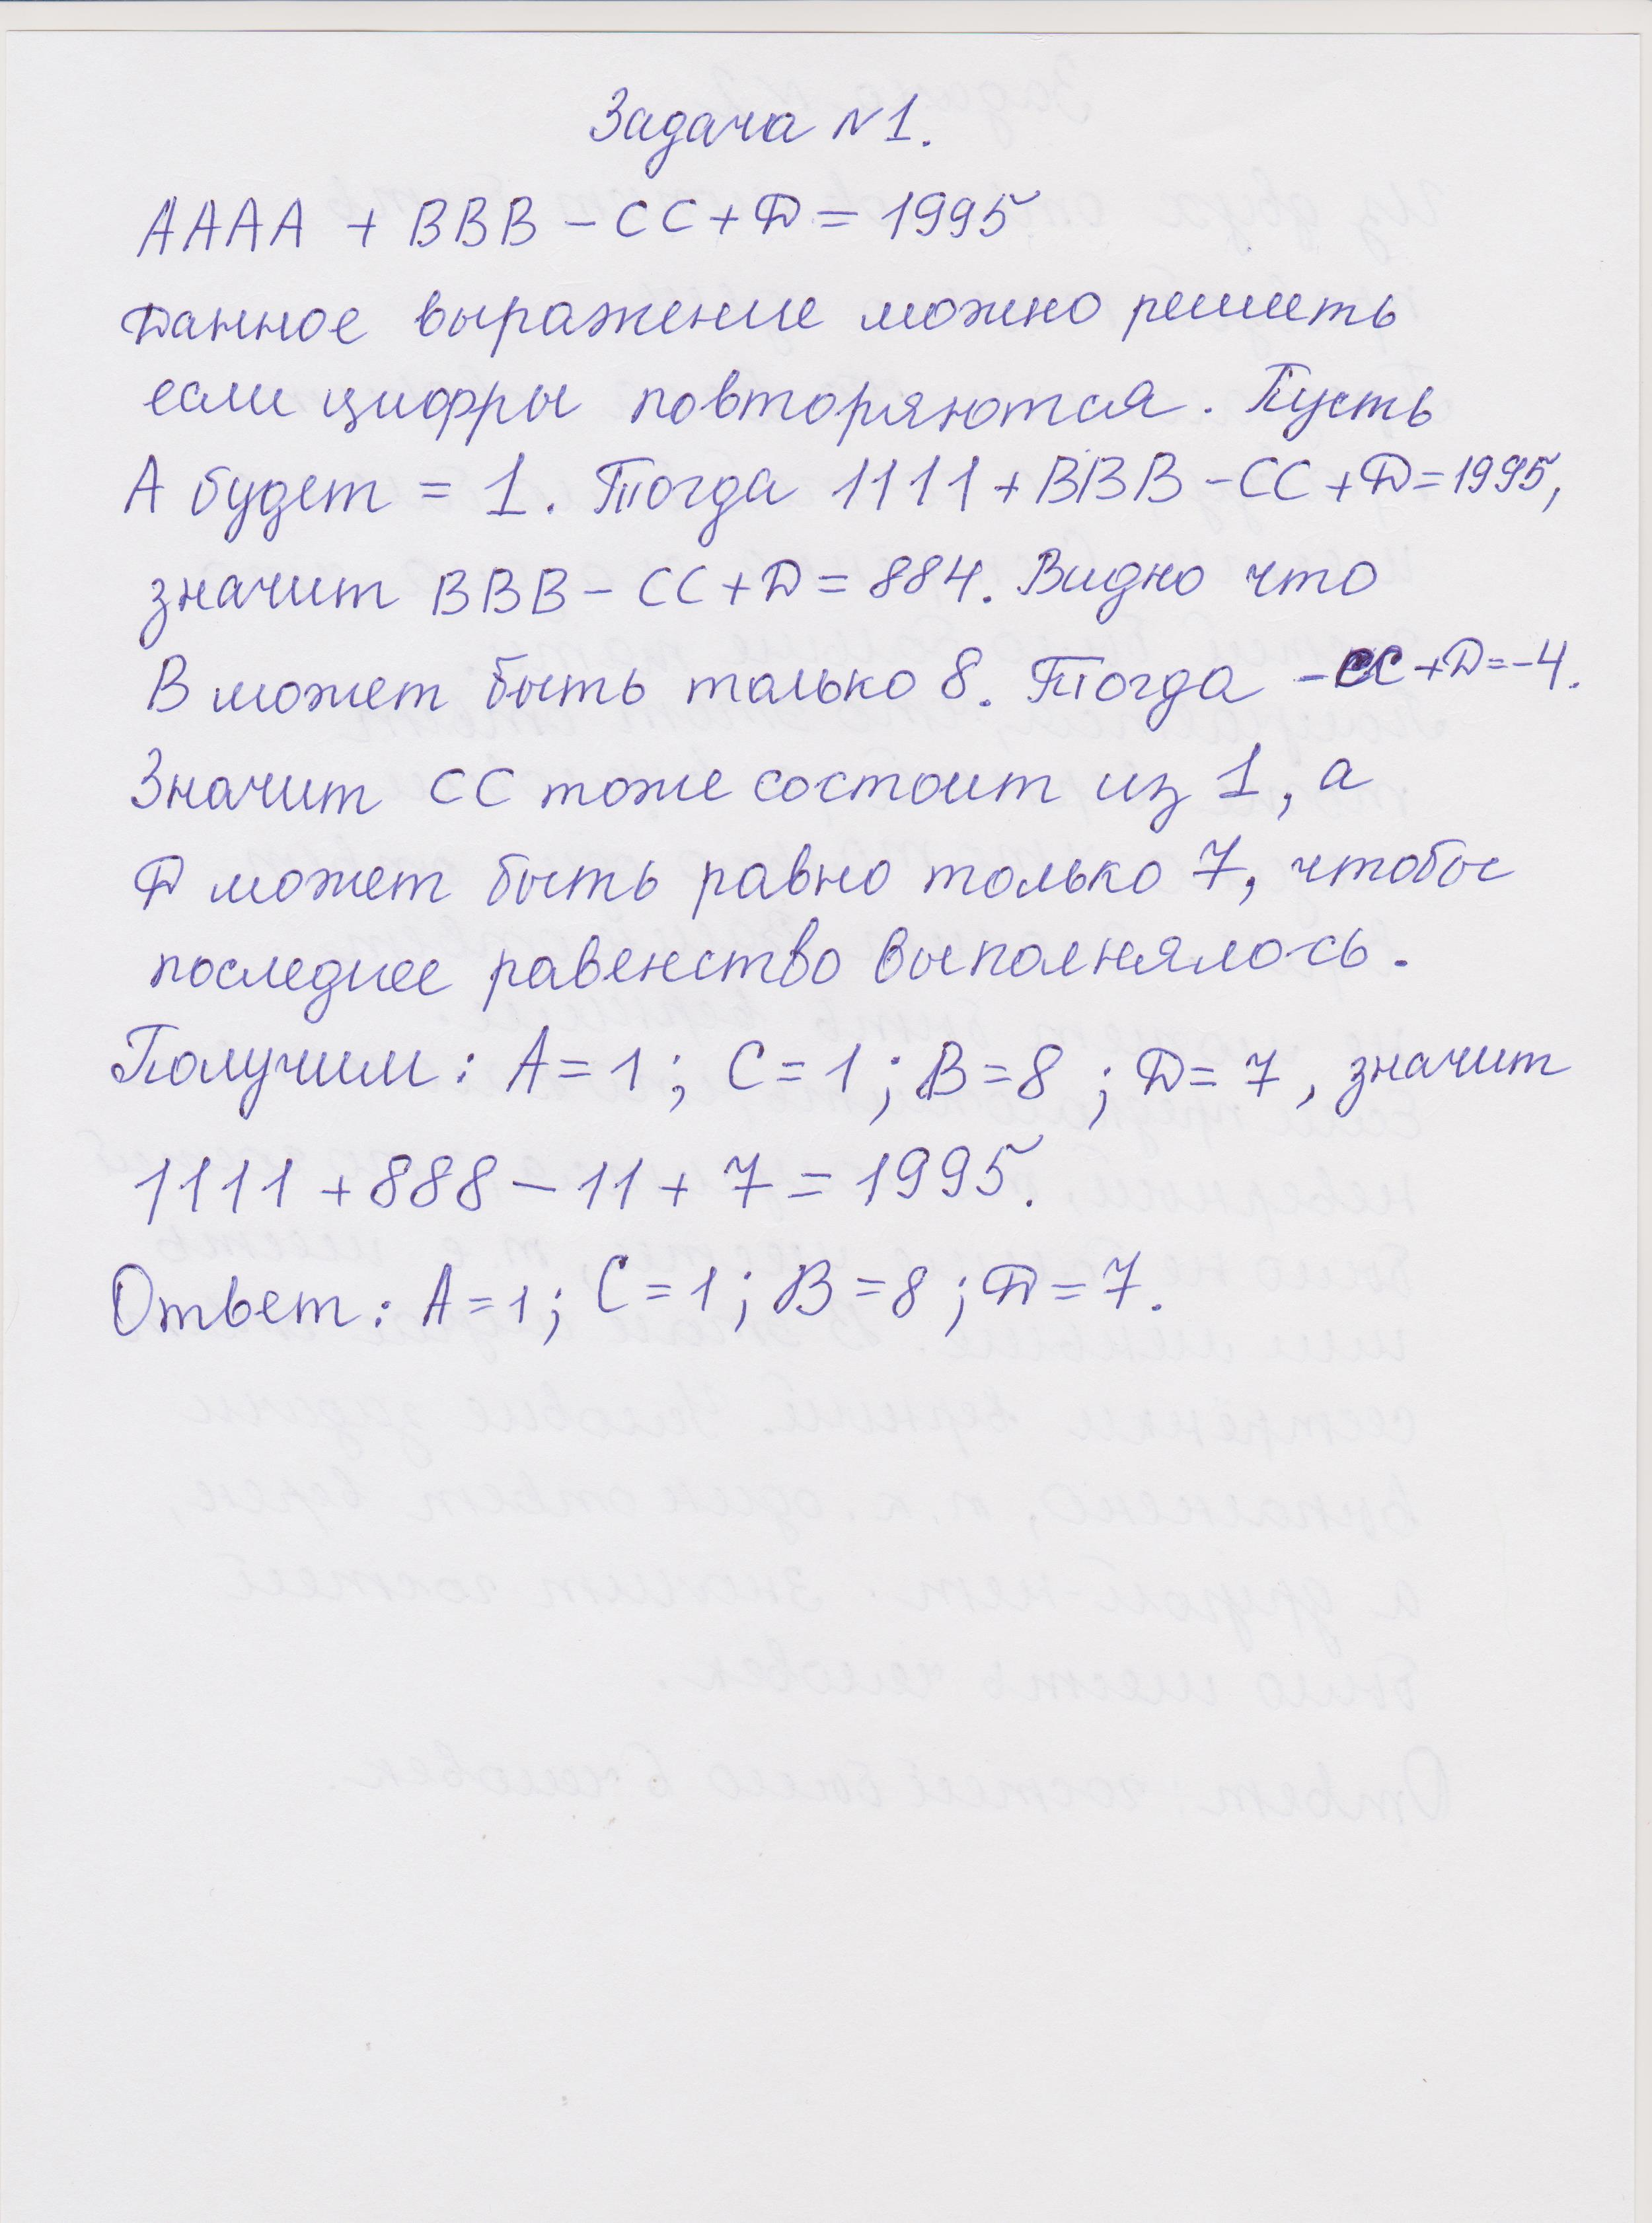 Задача №1.
АААА + ВВВ – СС + Д = 1995
Данное выражение можно решить
если цифры повторяются. Пусть
А будет = 1. Тогда 1111 + ВВВ – СС + Д = 1995,
значит ВВВ – СС + Д = 884. Видно что
В может быть только 8. Тогда – СС + Д = – 4.
Значит СС тоже состоит из 1, а
Д может быть равно только 7, чтобы
последнее равенство выполнялось.
Получим: А = 1; С = 1; В = 8; Д = 7, значит
1111 + 888 – 11 + 7 = 1995.
Ответ: А = 1; С = 1; В = 8; Д = 7.